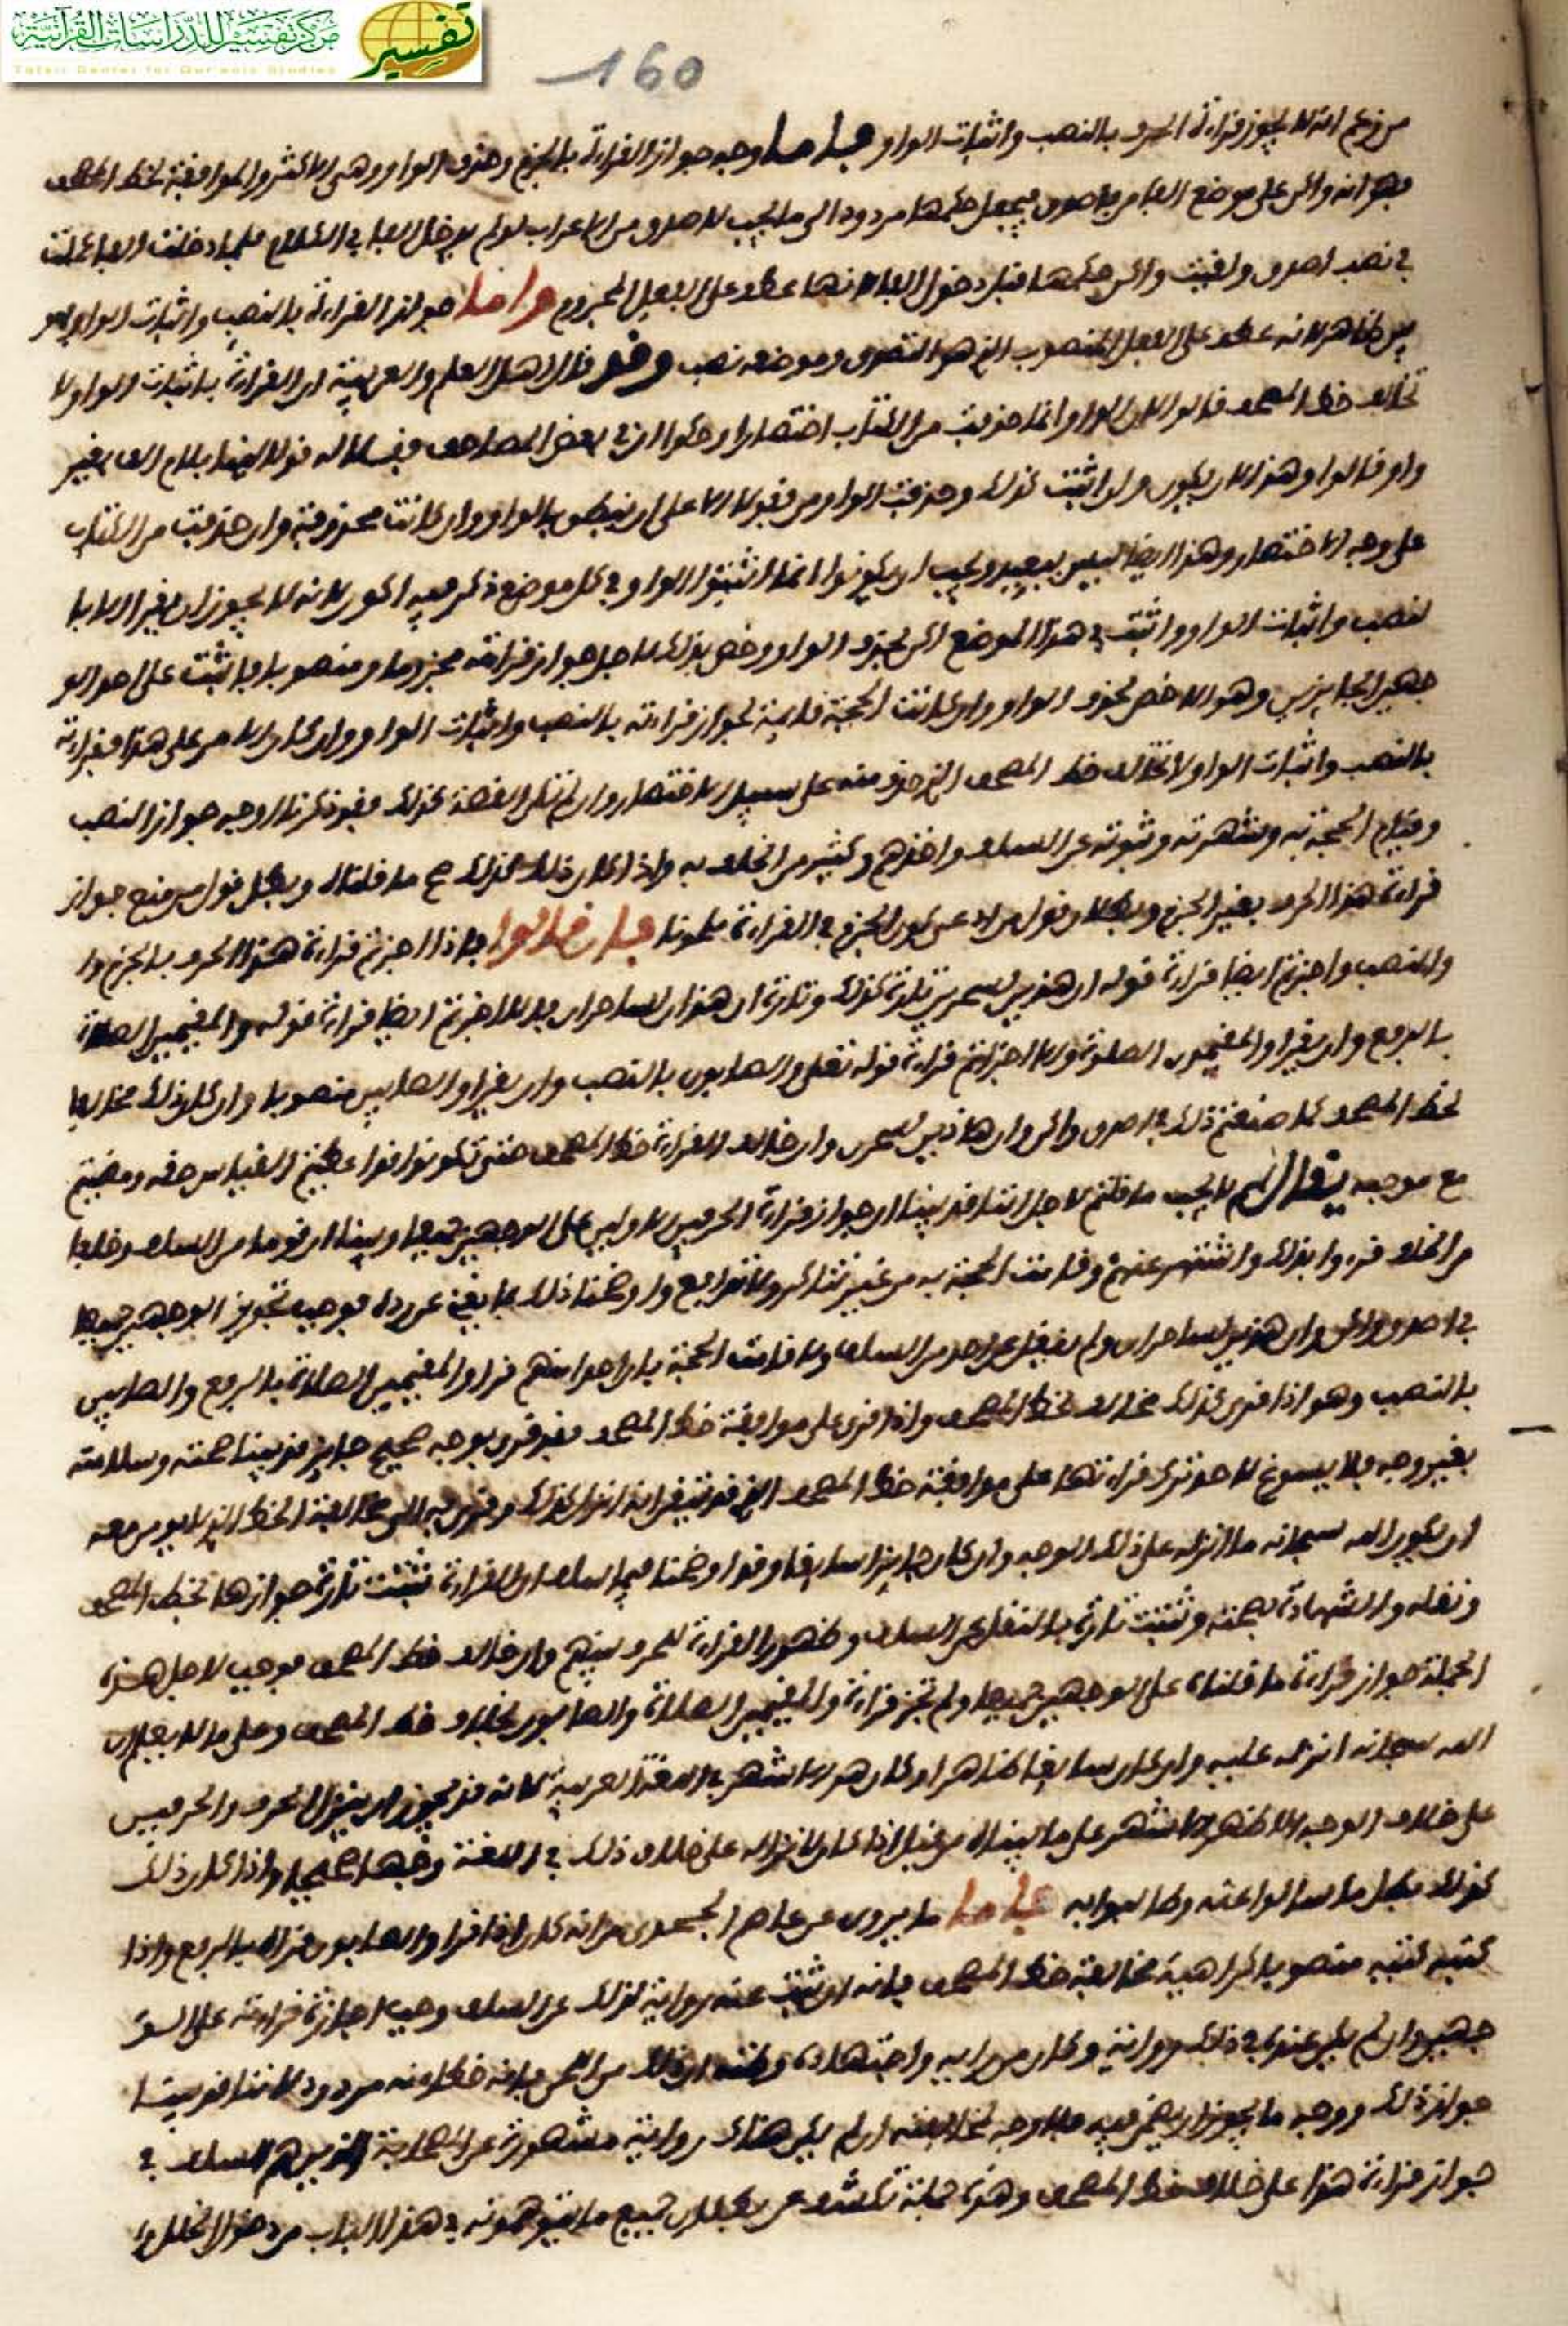 مركز تفسير للدراسات القرآنية
Tafsir Center for Qur'anic Studies
تفسير
160
من زعم انه لا يجوز قراءة الحرف بالنصب واثبات الواو فاما وجه جواز القراءة بالجزم وحذف الواو وهي الاكثر والموافقة لخط المصحف
فهو انه واكن على موضع الفا من فاصدق فيجعل حكمها مردودا الى ما يجب لاصدق من الاعراب لو لم يدخل الفا في الكلام فلما دخلت الفا عملت
في نصب اصدق وبقيت واكن حكمها قبل دخول الفا لانها عطف على الفعل المجزوم واما جواز القراءة بالنصب واثبات الواو
بين ظاهر لانه عطف على الفعل المنصوب الذي هو التصدق وموضعه نصب وقد قال اهل العلم والعربية ان القراءة باثبات الواو لا
تخالف خط المصحف قالوا لان الواو انما حذفت من الكتاب اختصارا وحكوا ان في بعض المصاحف فقلا له قولا لينا بلام الف بغير
واو قالوا وهذا لا يكون ولو اثبت كذلك وحذفت الواو من فقولا الا على ان ينطق بالواو وان كانت محذوفة وان حذفت من الكتاب
على وجه الاختصار وهذا ايضا ليس ببعيد ويجب ان يكونوا انما اثبتوا الواو في كل موضع ذكر فيه اكون لانه لا يجوز ان يقرا الا با
لنصب واثبات الواو واثبت في هذا الموضع اكن بحذف الواو وخص بذلك لاجل جواز قراءته مجزوما ومنصوبا فاثبت على احد الو
جهين الجايزين وهو الاخص بحذف الواو وان كانت الحجة قايمة لجواز قراءته بالنصب واثبات الواو وان كان الامر على هذا فقراءته
بالنصب واثبات الواو لا تخالف خط المصحف الذي حذف منه على سبيل الاختصار وان لم تكن القصة كذلك فقد ذكرنا وجه جواز النصب
وقيام الحجة به وشهرته وثبوته عن السلف واخذهم وكثير من الخلف به واذا كان ذلك كذلك صح ما قلناه وبطل قول من منع جواز
قراءة هذا الحرف بغير الجزم وبطلان قول من ادعى كون الجزم في القراءة ملحونا فان قالوا فاذا اجزتم قراءة هذا الحرف بالجزم وا
والنصب واجزتم ايضا قراءة قوله ان هذين لسحرين تارة كذلك وتارة ان هذان لساحران فلا اجزتم ايضا قراءة قوله والمقيمين الصلاة
بالرفع وان يقرا والمقيمون الصلوة والا اجزتم قراءة قوله تعلى والصابون بالنصب وان يقرا والصابين منصوبا وان كان ذلك مخالفا
لخط المصحف كما صنعتم ذلك في اصدق واكن وان هاذين لسحرن وان خالف القراءة خط المصحف حتى تكونوا قوا عطيتم القياس حقه ومضيتم
مع موجبه يقال لهم لا يجب ما قلتم لاجل اننا قد بينا ان جواز قراءة الحرفين الاولين على الوجهين جميعا وبينا ان قوما من السلف وخلقا
من الخلف قروا بذلك واشتهر عنهم وقامت الحجة به من غير تناكر ولا تدافع واوضحنا ذلك بما يغني عن رده فوجب تجويز الوجهين جميعا
في اصدق واكن وان هذين لساحران ولم ينقل عن احد من السلف ولا قامت الحجة بان احدا منهم قرا والمقيمين الصلاة بالرفع والصابين
بالنصب وهو اذا قرى كذلك مخالف لخط المصحف واذا قرى على موافقة خط المصحف فقد قرى بوجه صحيح جايز قد بينا صحته وسلامته
بغير وجه فلا يسوغ لاحد ترك قراءتها على موافقة خط المصحف الذي قد تيقن انه انزل كذلك وقرى به الى مخالفة الخط الذي لا يومن معه
ان يكون الله سبحانه ما انزله على ذلك الوجه وان كان جايزا سايغا وقد اوضحنا فيما سلف ان القراءة تثبت تارة جوازها بخط المصحف
ونقله والشهادة بصحته وتثبت تارة بالنقل عن السلف وظهور القراءة للحرف بينهم وان خالف خط المصحف فوجب لاجل هذه
الجملة جواز قراءة ما قلناه على الوجهين جميعا ولم تجز قراءة والمقيمين الصلاة والصابون بخلاف خط المصحف وعلى ما لا يعلم ان
الله سبحانه انزله عليه وان كان سايغا ظاهرا وكان هو الاشهر في اللغة العربية لانه قد يجوز ان ينزل الحرف والحرفين
على خلاف الوجه الاظهر الاشهر على ما بيناه من قبل اذا كان لانزاله على خلاف ذلك في اللغة وجها صحيحا واذا كان ذلك
كذلك بطل ما سالوا عنه وطالبوا به فاما ما يروى عن عاصم الجحدري من انه كان اذا قرا والصابون قراه بالرفع واذا
كتبه كتبه منصوبا كراهية مخالفة خط المصحف فانه ان ثبت عنه رواية لذلك عن السلف وجب اجازة قراءته على الو
جهين وان لم يكن عنده في ذلك رواية وكان من رايه واجتهاده وظنه ان ذلك من اللحن فانه خطا منه مردود لاننا قد بينا
جواز ذلك ووجه ما يجوز ان يضمر فيه فلا وجه لمخالفته ان لم يكن هناك رواية مشهورة عن الصحابة الذين هم السلف في
جواز قراءة هذا على خلاف خط المصحف وهذه جملة تكشف عن بطلان جميع ما يتوهمونه في هذا الباب من دخول الخلل